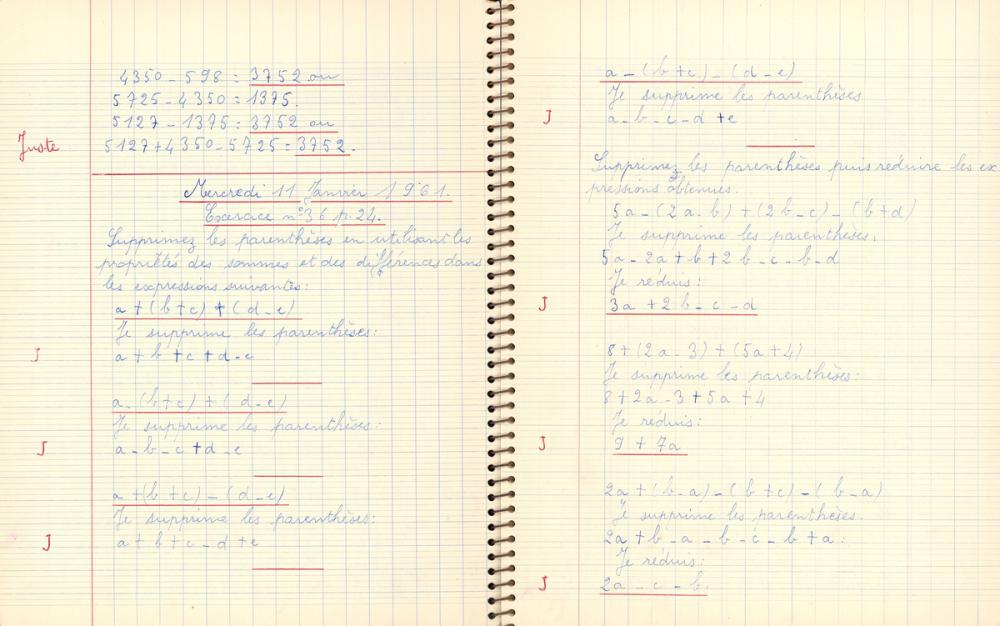 4350 - 598 = 3752 ou
5725 - 4350 = 1375.
5127 - 1375 = 3752 ou
Juste 5127 + 4350 - 5725 = 3752.
Mercredi 11 Janvier 1961.
Exercice n° 36 p. 24.
Supprimez les parenthèses en utilisant les
propriétés des sommes et des différences dans
les expressions suivantes:
a + (b + c) + (d - e)
Je supprime les parenthèses:
J a + b + c + d - e
a - (b + c) + (d - e)
Je supprime les parenthèses:
J a - b - c + d - e
a + (b + c) - (d - e)
Je supprime les parenthèses:
J a + b + c - d + e
a - (b + c) - (d - e)
Je supprime les parenthèses
J a - b - c - d + e
Supprimez les parenthèses puis réduire les ex
pressions obtenues.
5a - (2a - b) + (2b - c) - (b + d)
Je supprime les parenthèses.
5a - 2a + b + 2b - c - b - d
Je réduis:
J 3a + 2b - c - d
8 + (2a - 3) + (5a + 4)
Je supprime les parenthèses:
8 + 2a - 3 + 5a + 4
Je réduis:
J 9 + 7a
2a + (b - a) - (b + c) - (b - a)
Je supprime les parenthèses.
2a + b - a - b - c - b + a:
Je réduis:
J 2a - c - b